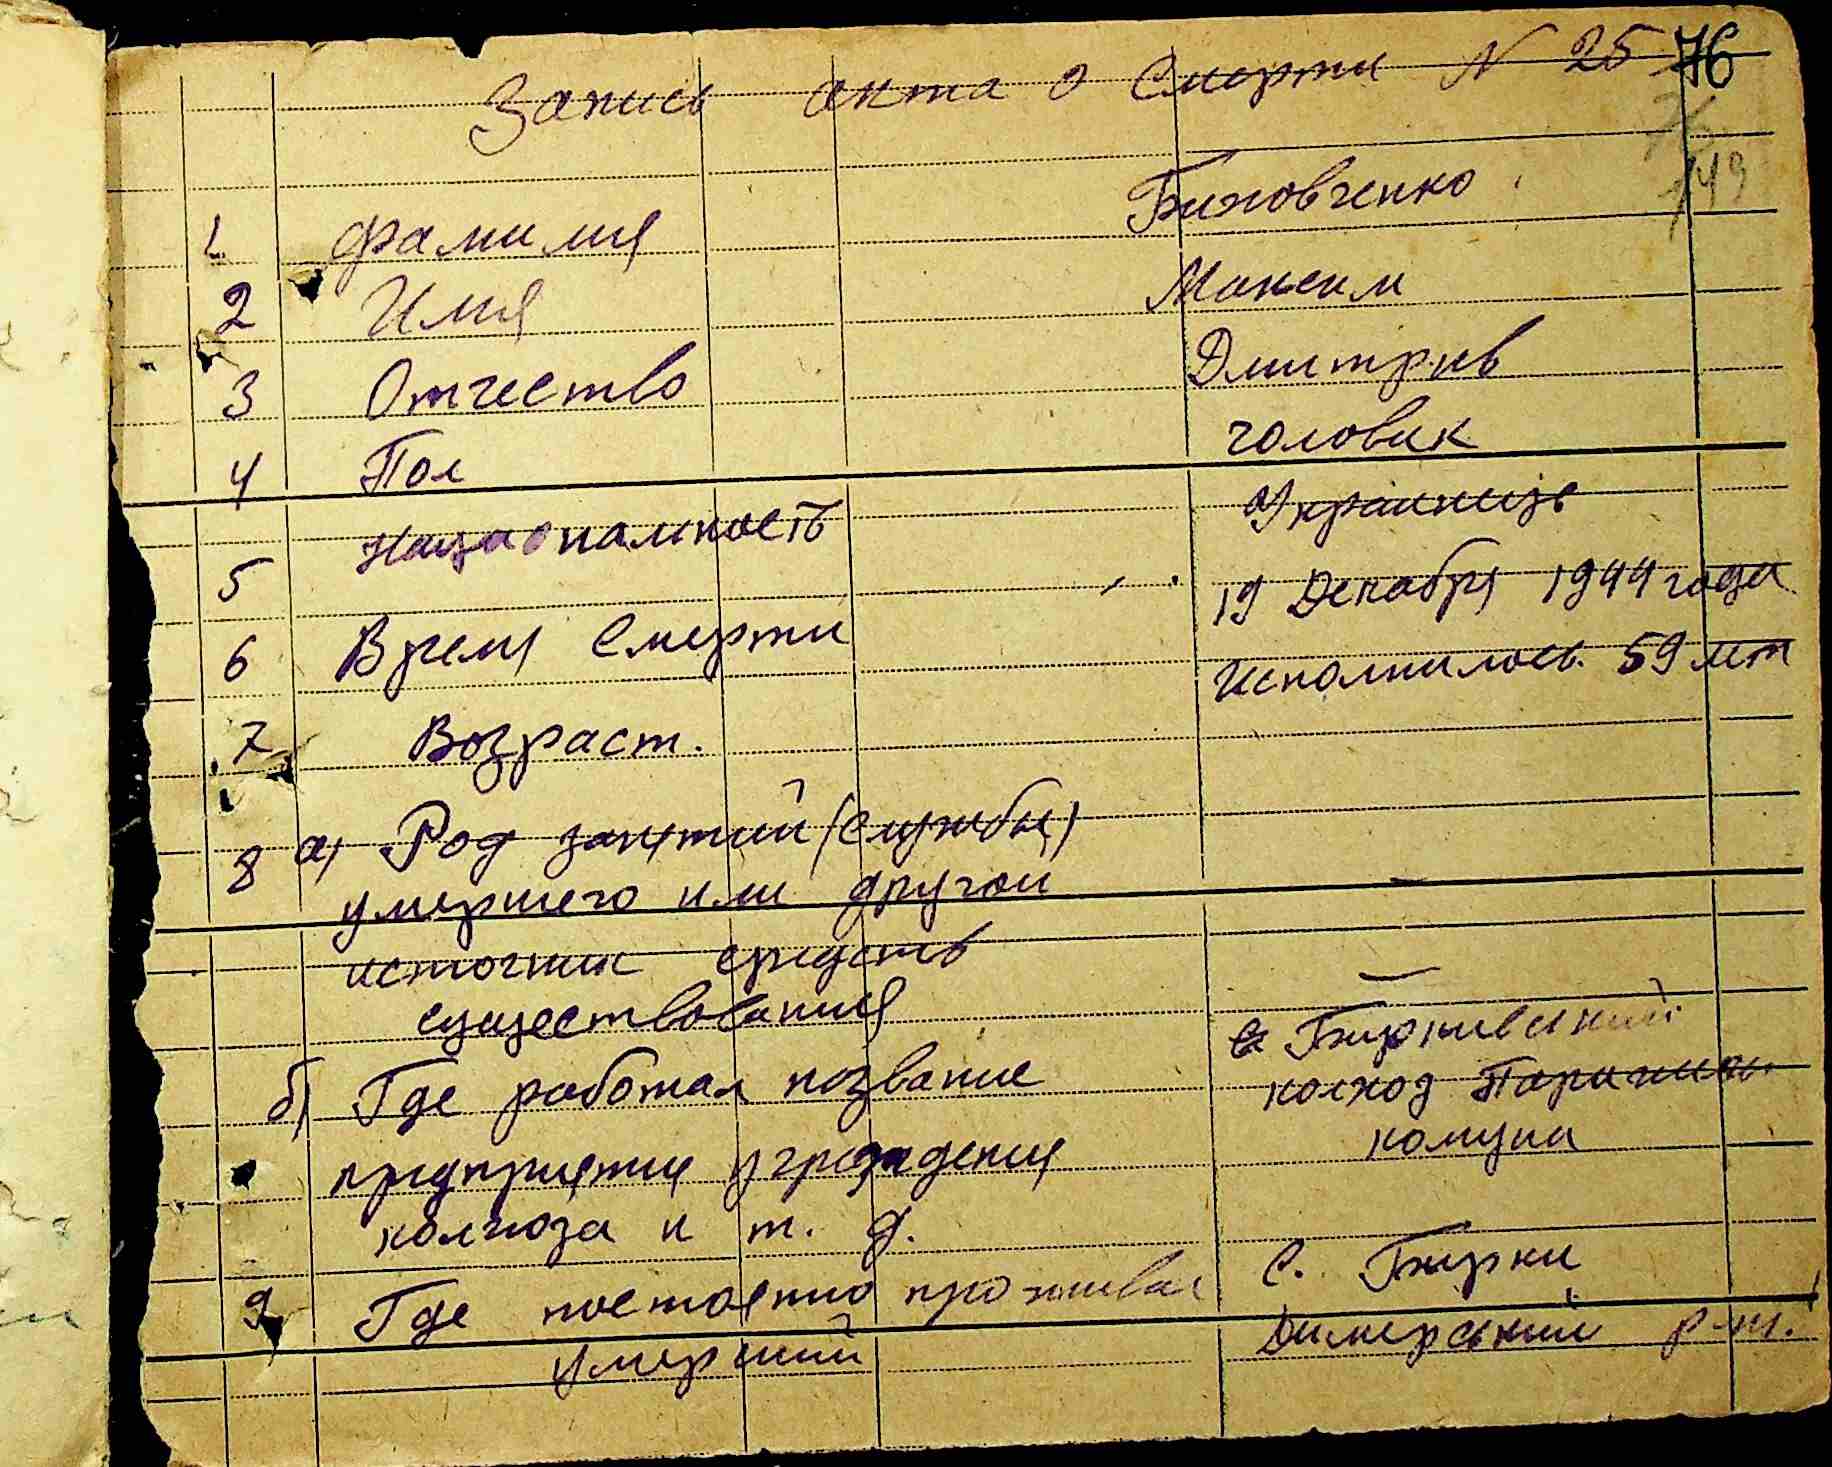 Запись акта о Смерти N 25 76
149
1 Фамилия Биховченко
2 Имя Максим
3 Отчество Дмитрив
4 Пол чоловик
5 Национамность Украинизь
6 Время Смерти 19 Декабря 1944 года
7 Возраст. исполнилось 59 лет
8 а) Род занятий (службы)
умершего или другои —
источник средств
существования —
б) Где работал название Биркивский
предприятия учреждения колход Парижськ.
колхоза и т. д. комуна
9 Где постоянно проживал С. Бирки
умерший Димерський р-ни.